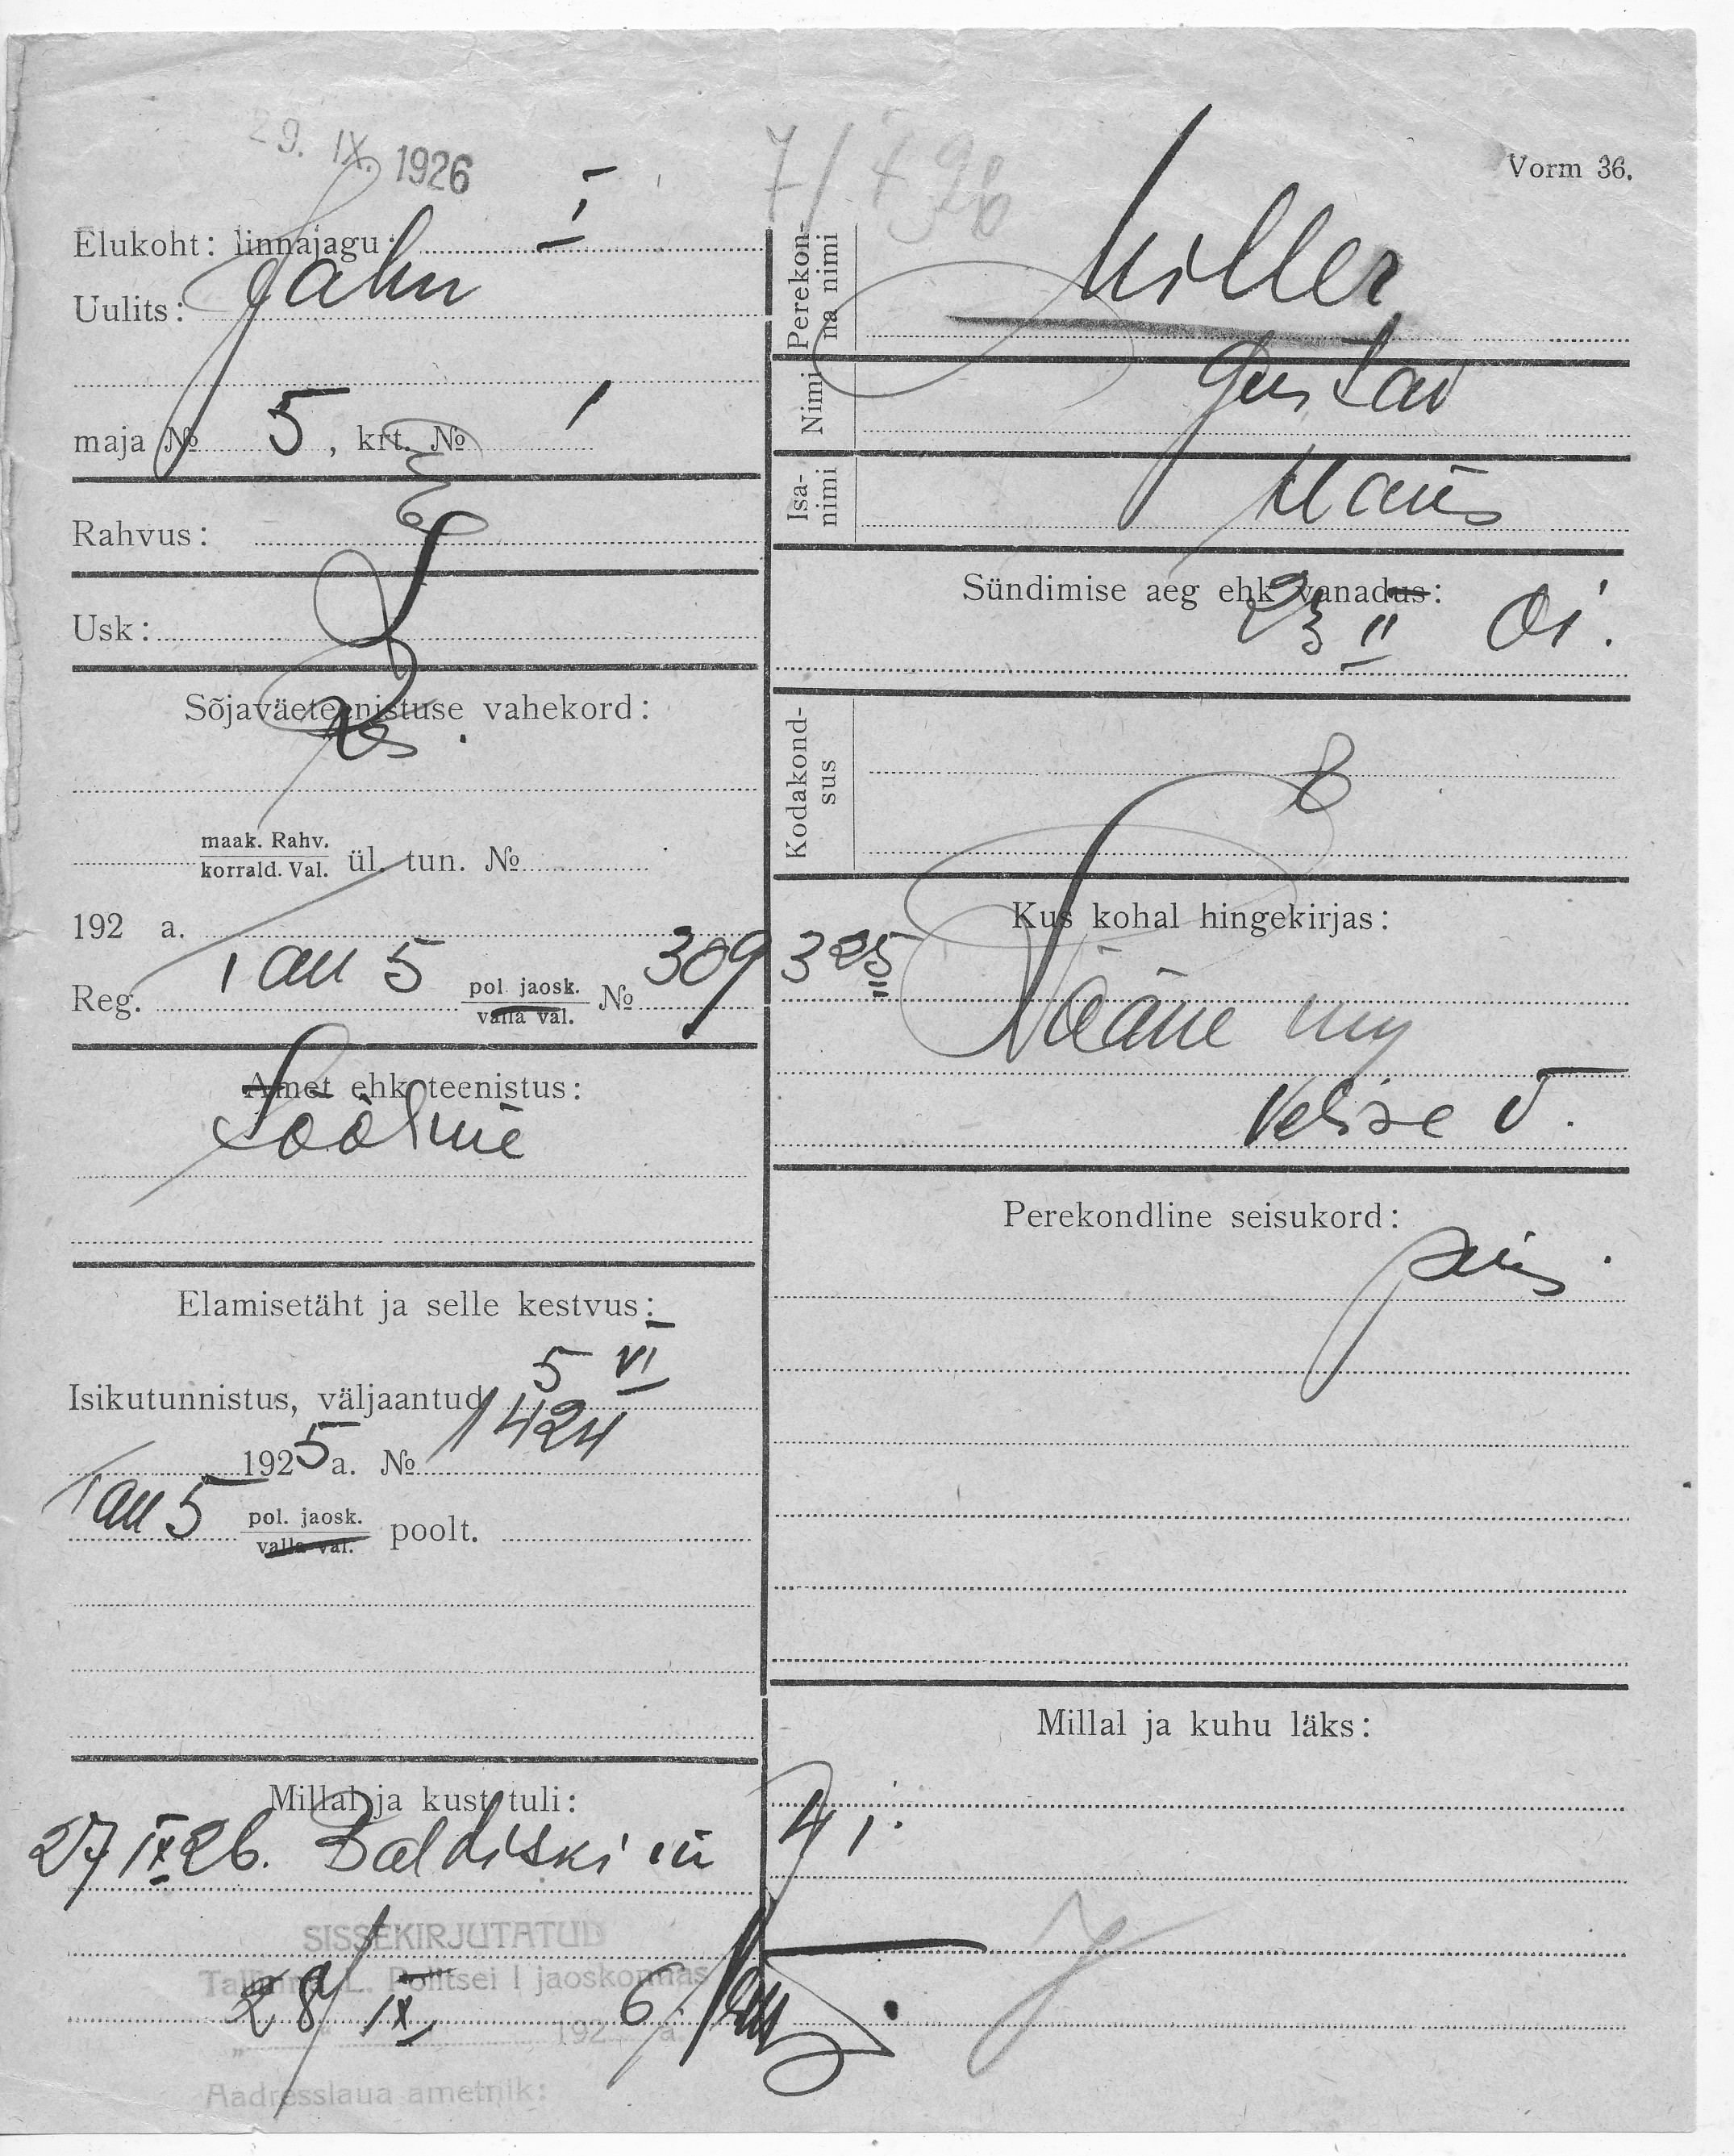 29. IX. 1926
Vorm 36.
Elukoht: linnajagu: I
Uulits: Jahu
maja № 5, krt. № 1
Rahvus: E
Usk:
Sõjaväeteenistuse vahekord:
Res.
maak. Rahv.
korrald. Val. ül. tun. №
192 a.
Reg. Tall 5 pol. jaosk. № 309325
valla val.
Amet ehk teenistus:
Tööline
Elamisetäht ja selle kestvus:
Isikutunnistus, väljaantud 5 VI
1925 a. № 1424
Tall 5 pol. jaosk. poolt.
valla val.
Millal ja kust tuli:
27 IX 26. Baltiski
SISSEKIRJUTATUD
Tallinna L. Politsei I jaoskonnas
„28" IX 1926 a.
Aadresslaua ametnik:
Perekonna nimi Miller
Nimi Gustav
Isanimi Hans
Sündimise aeg ehk vanadus:
23 II 01.
Kodakondsus E
Kus kohal hingekirjas:
Lääne
Velise v.
Perekondline seisukord:
Millal ja kuhu läks: